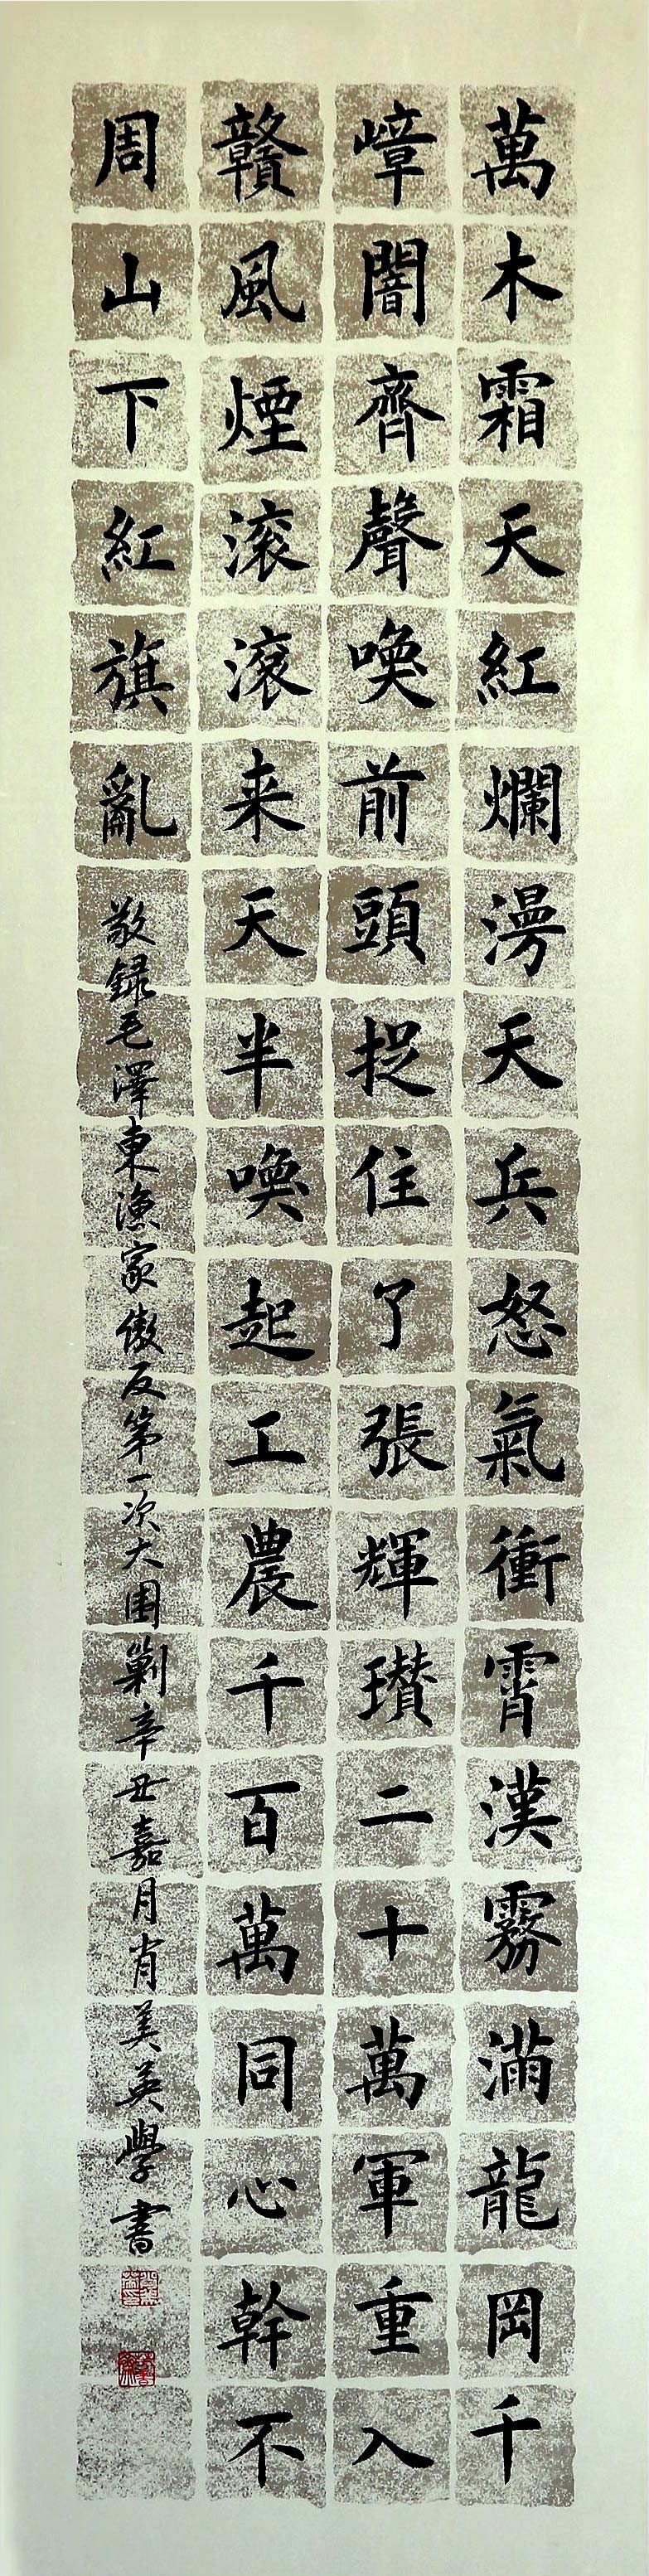 萬木霜天紅爛漫天兵怒氣衝霄漢霧滿龍岡千
嶂闇齊聲喚前頭捉住了張輝瓚二十萬軍重入
贛風煙滾滾来天半喚起工農千百萬同心幹不
周山下紅旗亂
敬録毛澤東漁家傲反第一次大圍剿辛丑嘉月肖美英學書